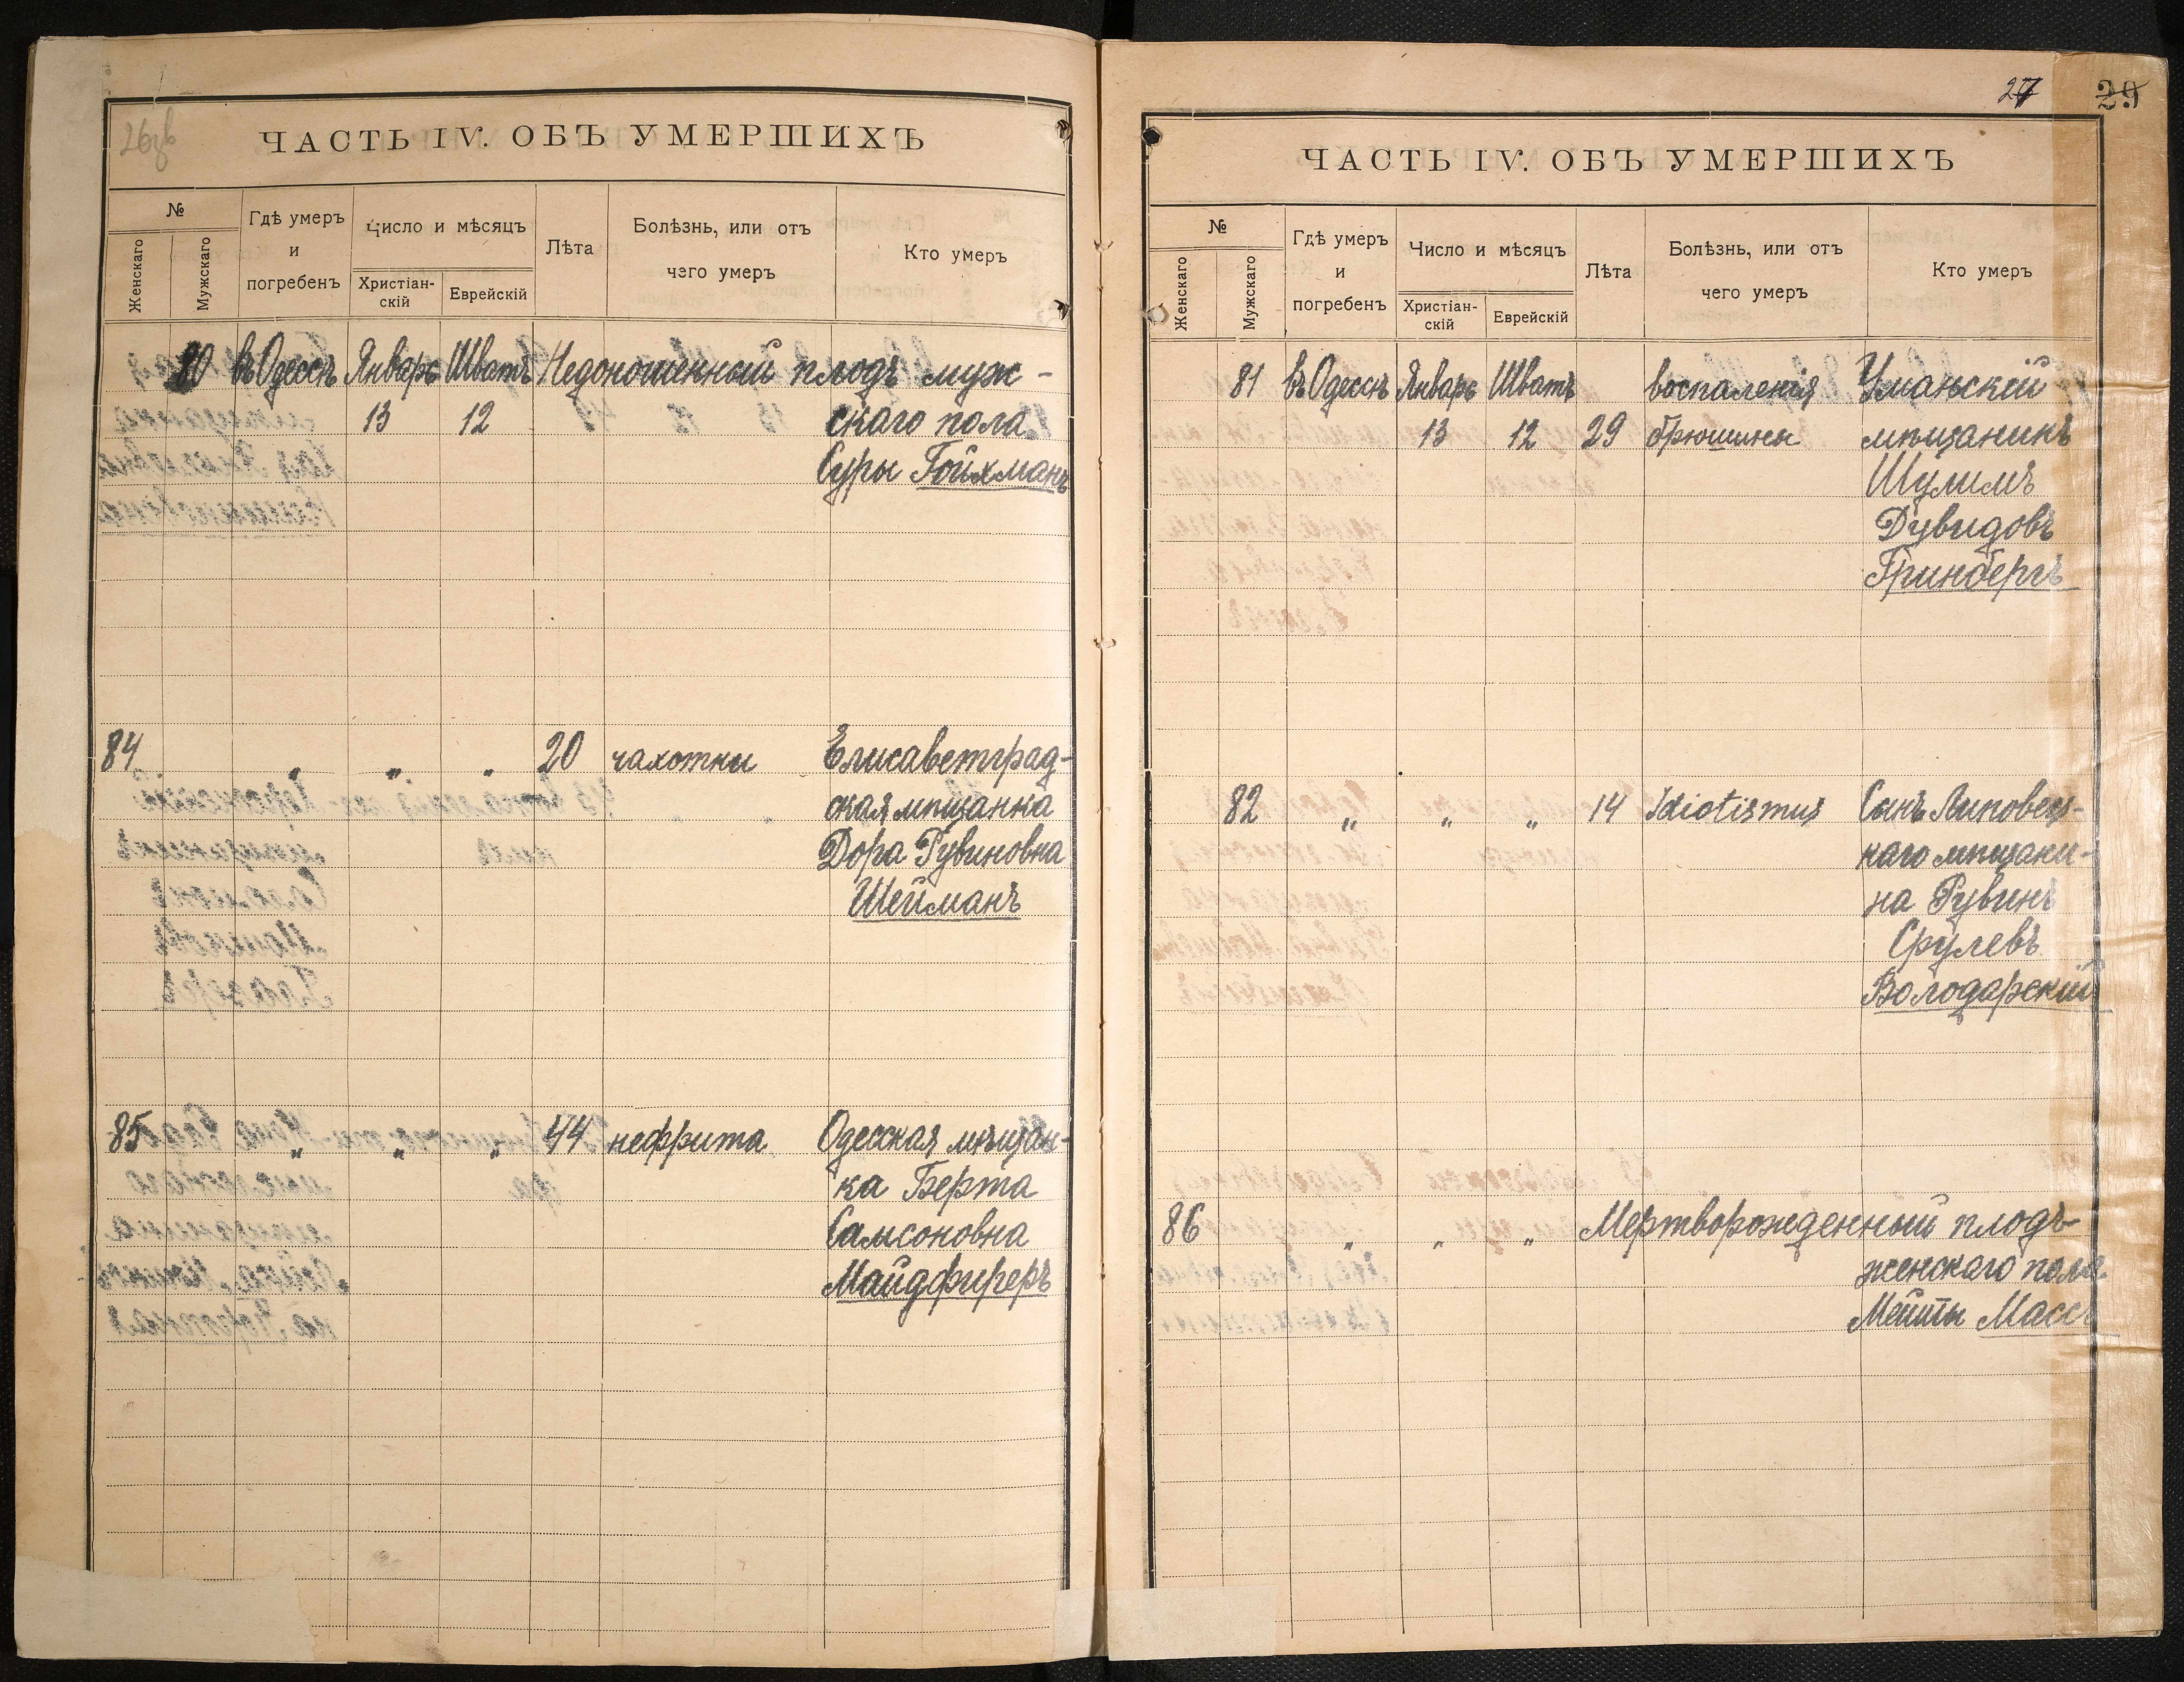 26об
ЧАСТЬ IV. ОБЪ УМЕРШИХЪ
№
Женскаго
Мужскаго
Гдѣ умеръ
и
погребенъ
Число и мѣсяцъ
Христіан-
скій
Еврейскій
Лѣта
Болѣзнь, или отъ
чего умеръ
Кто умеръ
80 въ Одессѣ Январь Шватъ Недоношенный плодъ муж-
13 12 скаго пола
Суры Гойхманъ
84 „ „ „ 20 чахотки Елисаветград-
ская мѣщанка
Дора Рувиновна
Шейманъ
85 „ „ „ 44 нефрита Одесская мѣщан-
ка Берта
Самсоновна
Майдфиреръ
27 29
ЧАСТЬ IV. ОБЪ УМЕРШИХЪ
№
Женскаго
Мужскаго
Гдѣ умеръ
и
погребенъ
Число и мѣсяцъ
Христіан-
скій
Еврейскій
Лѣта
Болѣзнь, или отъ
чего умеръ
Кто умеръ
81 въ Одессѣ Январь Шватъ воспаленія Уманскій
13 12 29 брюшины мѣщанинъ
Шулимъ
Дувидовъ
Гринбергъ
82 „ „ „ 14 Idiotismus Сынъ Липовец-
каго мѣщани-
на Рувинъ
Срулевъ
Володарскій
86 „ „ „ Мертворожденный плодъ
женскаго пола
Мейты Массъ